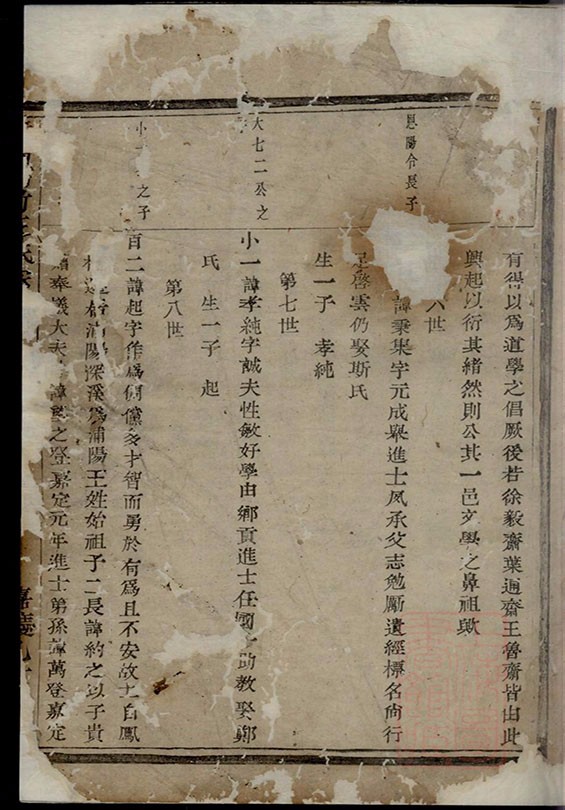 有得以為道學之倡厥後若徐毅齋葉通齋王魯齋皆由此
興起以衍其緒然則公其一邑文學之鼻祖歟
六世
恩陽令長子
諱秉集字元成舉進士夙承父志勉勵遺經標名尚行
啓雲仍娶斯氏
生一子 孝純
第七世
大七二公之
小一諱孝純字誠夫性敏好學由鄉貢進士任國助教娶鄭
氏 生一子 起
第八世
小一之子
百二諱起字作為倜儻多才智而勇於有為且不安故土自鳳
浦陽深溪為浦陽王姓始祖子二長諱約之以子貴
奉議大夫諱之登嘉定元年進士第孫諱萬登嘉定
嘉慶九